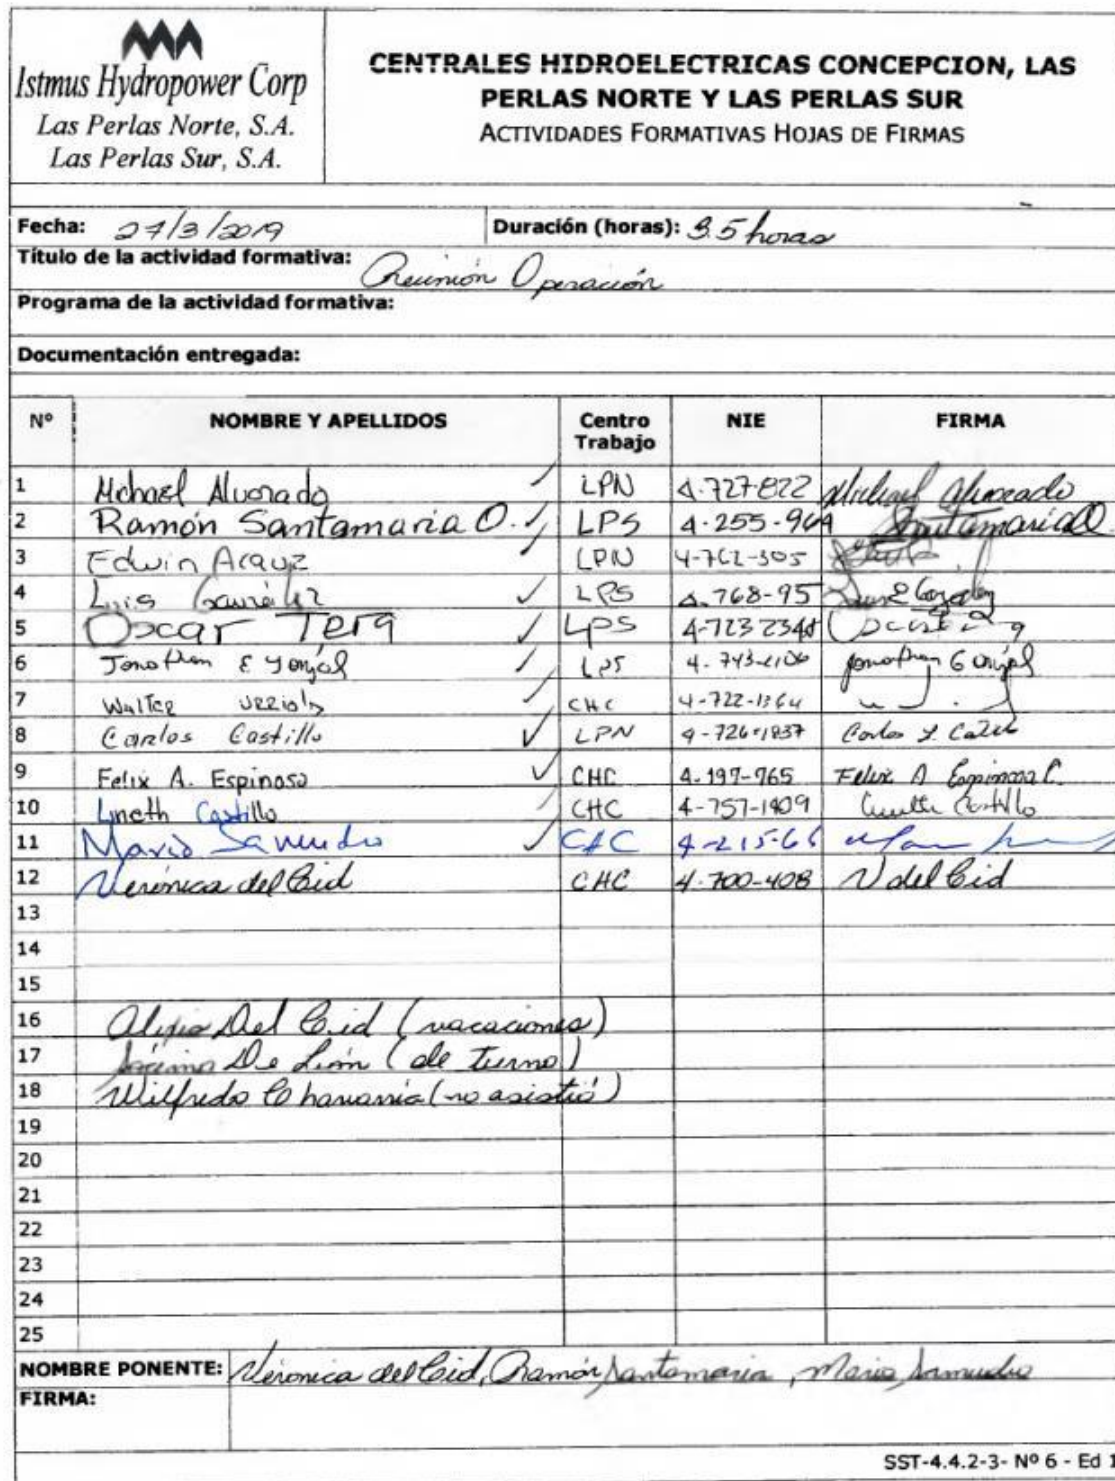 Istmus Hydropower Corp
Las Perlas Norte, S.A.
Las Perlas Sur, S.A.
CENTRALES HIDROELECTRICAS CONCEPCION, LAS
PERLAS NORTE Y LAS PERLAS SUR
ACTIVIDADES FORMATIVAS HOJAS DE FIRMAS
Fecha: 27/3/2019 Duración (horas): 3.5 horas
Título de la actividad formativa: Reunión Operación
Programa de la actividad formativa:
Documentación entregada:
Nº NOMBRE Y APELLIDOS Centro Trabajo NIE FIRMA
1 Michael Alvarado ✓ LPN 4-727-822 Michael Alvarado
2 Ramón Santamaria O. ✓ LPS 4-255-964 Santamaria O
3 Edwin Arauz ✓ LPN 4-762-305
4 Luis González ✓ LPS 4-768-95 Luis E González
5 Oscar Tera ✓ LPS 4-723-2348
6 Jonathan E ✓ LPS 4-743- Jonathan
7 Walter Urriola ✓ CHC 4-722-1364
8 Carlos Castillo ✓ LPN 4-726-1837 Carlos
9 Felix A. Espinosa ✓ CHC 4-197-765 Felix A Espinosa C.
10 Lineth Castillo ✓ CHC 4-757-1909 Castillo
11 Mario Samudio ✓ CHC 4-215-66
12 Verónica del Cid CHC 4-700-408 V del Cid
13
14
15
16 Del Cid (vacaciones)
17 De León (de turno)
18 Wilfredo Chavarría (no asistió)
19
20
21
22
23
24
25
NOMBRE PONENTE: Verónica del Cid, Ramón Santamaria, Mario Samudio
FIRMA:
SST-4.4.2-3- Nº 6 - Ed 1